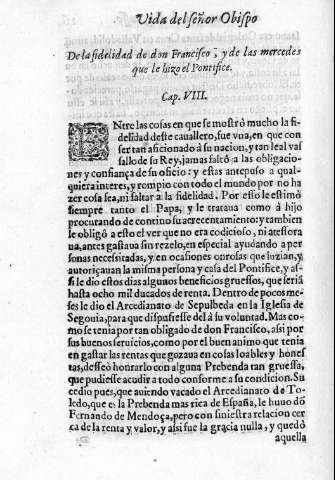 Vida del señor Obispo
De la fidelidad de don Francisco, y de las mercedes
que le hizo el Pontifice.
Cap. VIII.
ENtre las cosas en que se mostrò mucho la fi-
delidad deste cauallero, fue vna, en que con
ser tan aficionado á su nacion, y tan leal vas
sallo de su Rey, jamas faltò a las obligacio-
nes y confiança de su oficio: y estas antepuso a qual-
quiera interes, y rompio con todo el mundo por no ha
zer cosa fea, ni faltar a la fidelidad. Por esso le estimò
siempre tanto el Papa, y le trataua como â hijo
procurando de contino su acrecentamiento: y tambien
le obligò a esto el ver que no era codicioso, ni atessora
ua, antes gastaua sin rezelo, en especial ayudando a per
sonas necessitadas, y en ocasiones onrosas que luzian, y
autoriçauan la misma persona y casa del Pontifice, y as-
si le dio estos dias algunos beneficios gruessos, que seriã
hasta ocho mil ducados de renta. Dentro de pocos me-
ses le dio el Arcedianato de Sepulbeda en la Iglesia de
Segouia, para que dispusiesse del â su voluntad. Mas co-
mo se tenia por tan obligado de don Francisco, assi por
sus buenos seruicios, como por el buen animo que tenia
en gastar las rentas que gozaua en cosas loables y hones
tas, desseò honrarlo con alguna Prebenda tan gruessa,
que pudiesse acudir a todo conforme a su condicion. Su
cedio pues, que auiendo vacado el Arcedianato de To-
ledo, que es la Prebenda mas rica de España, le huuo dõ
Fernando de Mendoça, pero con siniestra relacion cer
ca de la renta y valor, y assi fue la gracia nulla, y quedò
aquella